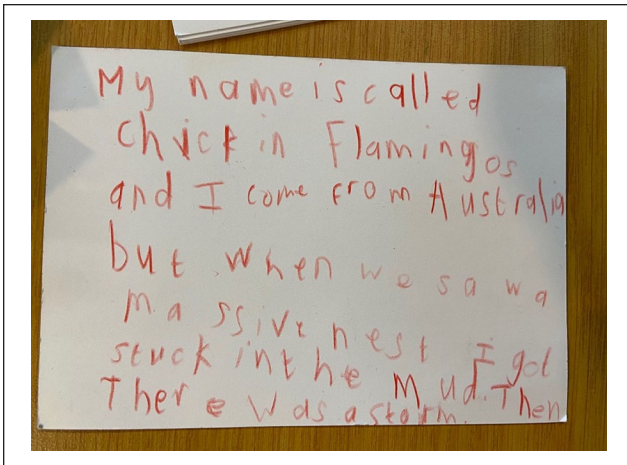 My name is called
chick in Flamingos
and I come from Australia
but when we saw a
massive nest I got
stuck in the mud. Then
There was a storm.